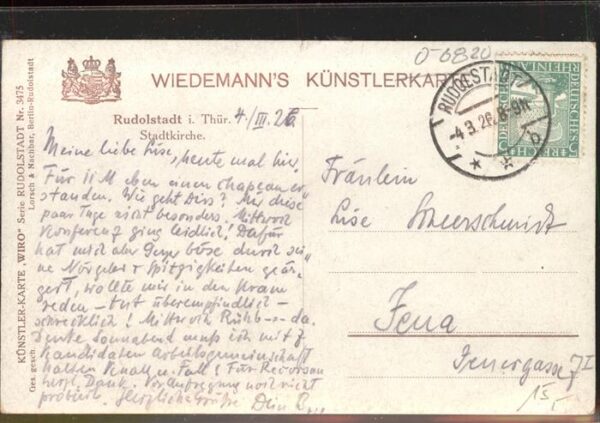 0-6820
WIEDEMANN'S KÜNSTLERKARTE
Rudolstadt i. Thür. 4./III. 26
Stadtkirche.
KÜNSTLER-KARTE „WIRO" Serie RUDOLSTADT Nr. 3475
Ges. gesch. Lorsch & Nachbar, Berlin-Rudolstadt
RUDOLSTADT
-4.3.26.8-9N.
b
DEUTSCHES REICH
RHEINLAND
5
Meine liebe Lise, heute mal hier.
Für 11 M eben einen chapeau er-
standen. Wie geht Dirs? Mir diese
paar Tage nicht besonders. Mittwoch
Konferenz ging leidlich! Dafür
hat mich aber böse durch sei-
ne Nörgelei + Spitzigkeiten geär-
gert, wollte mir in den Kram
reden - tut überempfindlich -
schrecklich! Mittwoch da.
Heute Sonnabend muß ich mit
Kandidaten Arbeitsgemeinschaft
halten Knall u. Fall! Für
herzl. Dank. noch nicht
probiert. Herzliche Grüße Dein
Fräulein
Lise
Jena
Jenergasse 7 I
15,-